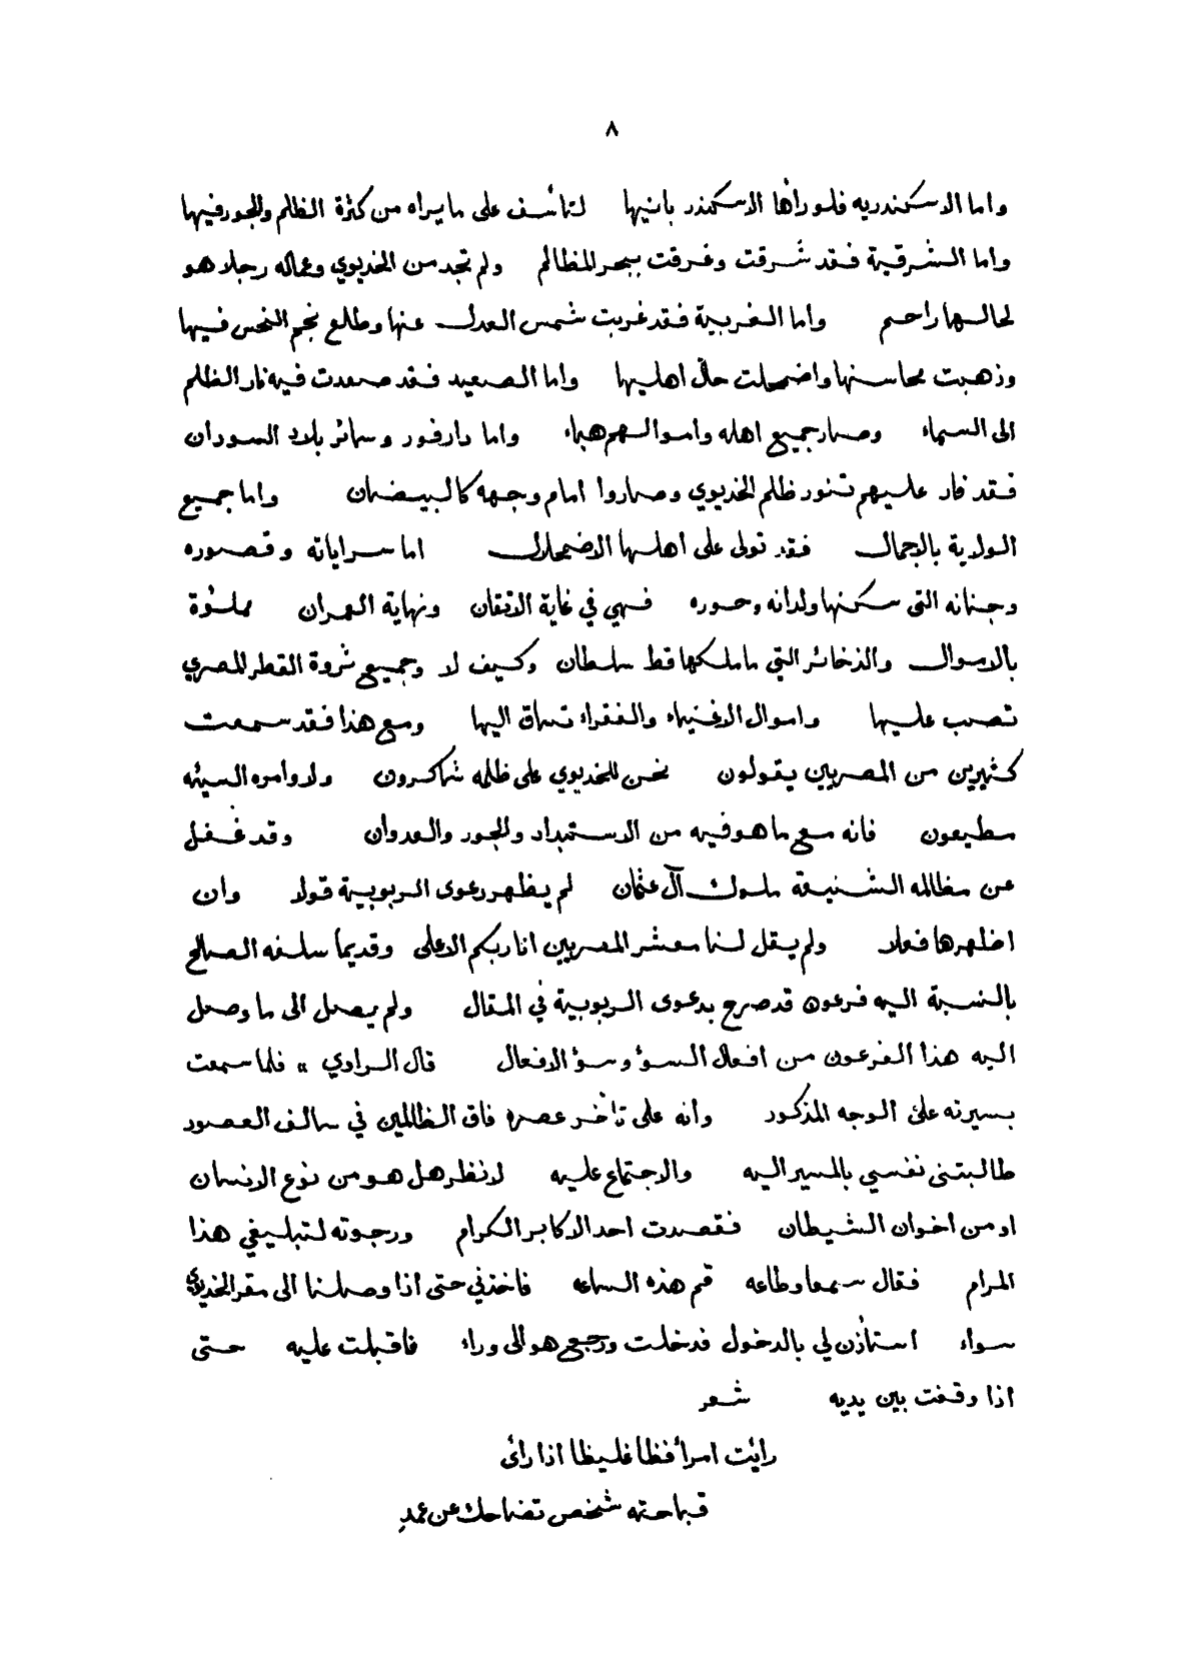 ٨
واما الاسكندريه فلورأها الاسكندر بانيها لتأسف على مايراه من كثرة الظلم والجورفيها
واما الشرقية فقد شرقت وغرقت ببحرالمظالم ولم تجد من الخديوي وعماله رجلا هو
لحالها راحم واما الغربية فقد غربت شمس العدل عنها وطلع نجم النحس فيها
وذهبت محاسنها واضمحلت حال اهليها واما الصعيد فقد صعدت فيه نار الظلم
الى السماء وصارجميع اهله واموالهم هباء واما دارفور وسائر بلاد السودان
فقد فار عليهم تنور ظلم الخديوي وصاروا امام وجهه كالبيضان واما جميع
الولاية بالاجمال فقد تولى على اهلها الاضمحلال اما سراياته وقصوره
وجنانه التى سكنها ولدانه وحوره فهي في غاية الاتقان ونهاية العمران مملؤة
بالاموال والذخائر التي ماملكها قط سلطان وكيف لا وجميع ثروة القطر المصري
تصب عليها واموال الاغنياء والفقراء تساق اليها ومع هذا فقد سمعت
كثيرين من المصريين يقولون نحن للخديوي على ظلمه شاكرون ولاوامره السيئه
مطيعون فانه مع ما هوفيه من الاستبداد والجور والعدوان وقد غفل
عن مظالمه الشنيعة ملوك آل عثمان لم يظهر دعوى الربوبية قولا وان
اظهرها فعلا ولم يقل لنا معشر المصريين انا ربكم الاعلى وقديما سلفه الصالح
بالنسبة اليه فرعون قد صرح بدعوى الربوبية في المقال ولم يصل الى ما وصل
اليه هذا الفرعون من افعال السؤ وسؤ الافعال قال الراوي » فلما سمعت
بسيرته على الوجه المذكور وأنه على تأخر عصره فاق الظالمين في سالف العصور
طالبتنى نفسي بالمسير اليه والاجتماع عليه لانظر هل هو من نوع الانسان
او من اخوان الشيطان فقصدت احد الاكابر الكرام ورجوته لتبليغي هذا
المرام فقال سمعا وطاعه قم هذه الساعه فاخذني حتى اذا وصلنا الى مقرالخديوي
سواء استأذن لي بالدخول فدخلت ورجع هو الى وراء فاقبلت عليه حتى
اذا وقفت بين يديه شعر
رأيت امرأ فظا غليظا اذا رأى
قباحته شخص تضاحك عن عمدِ